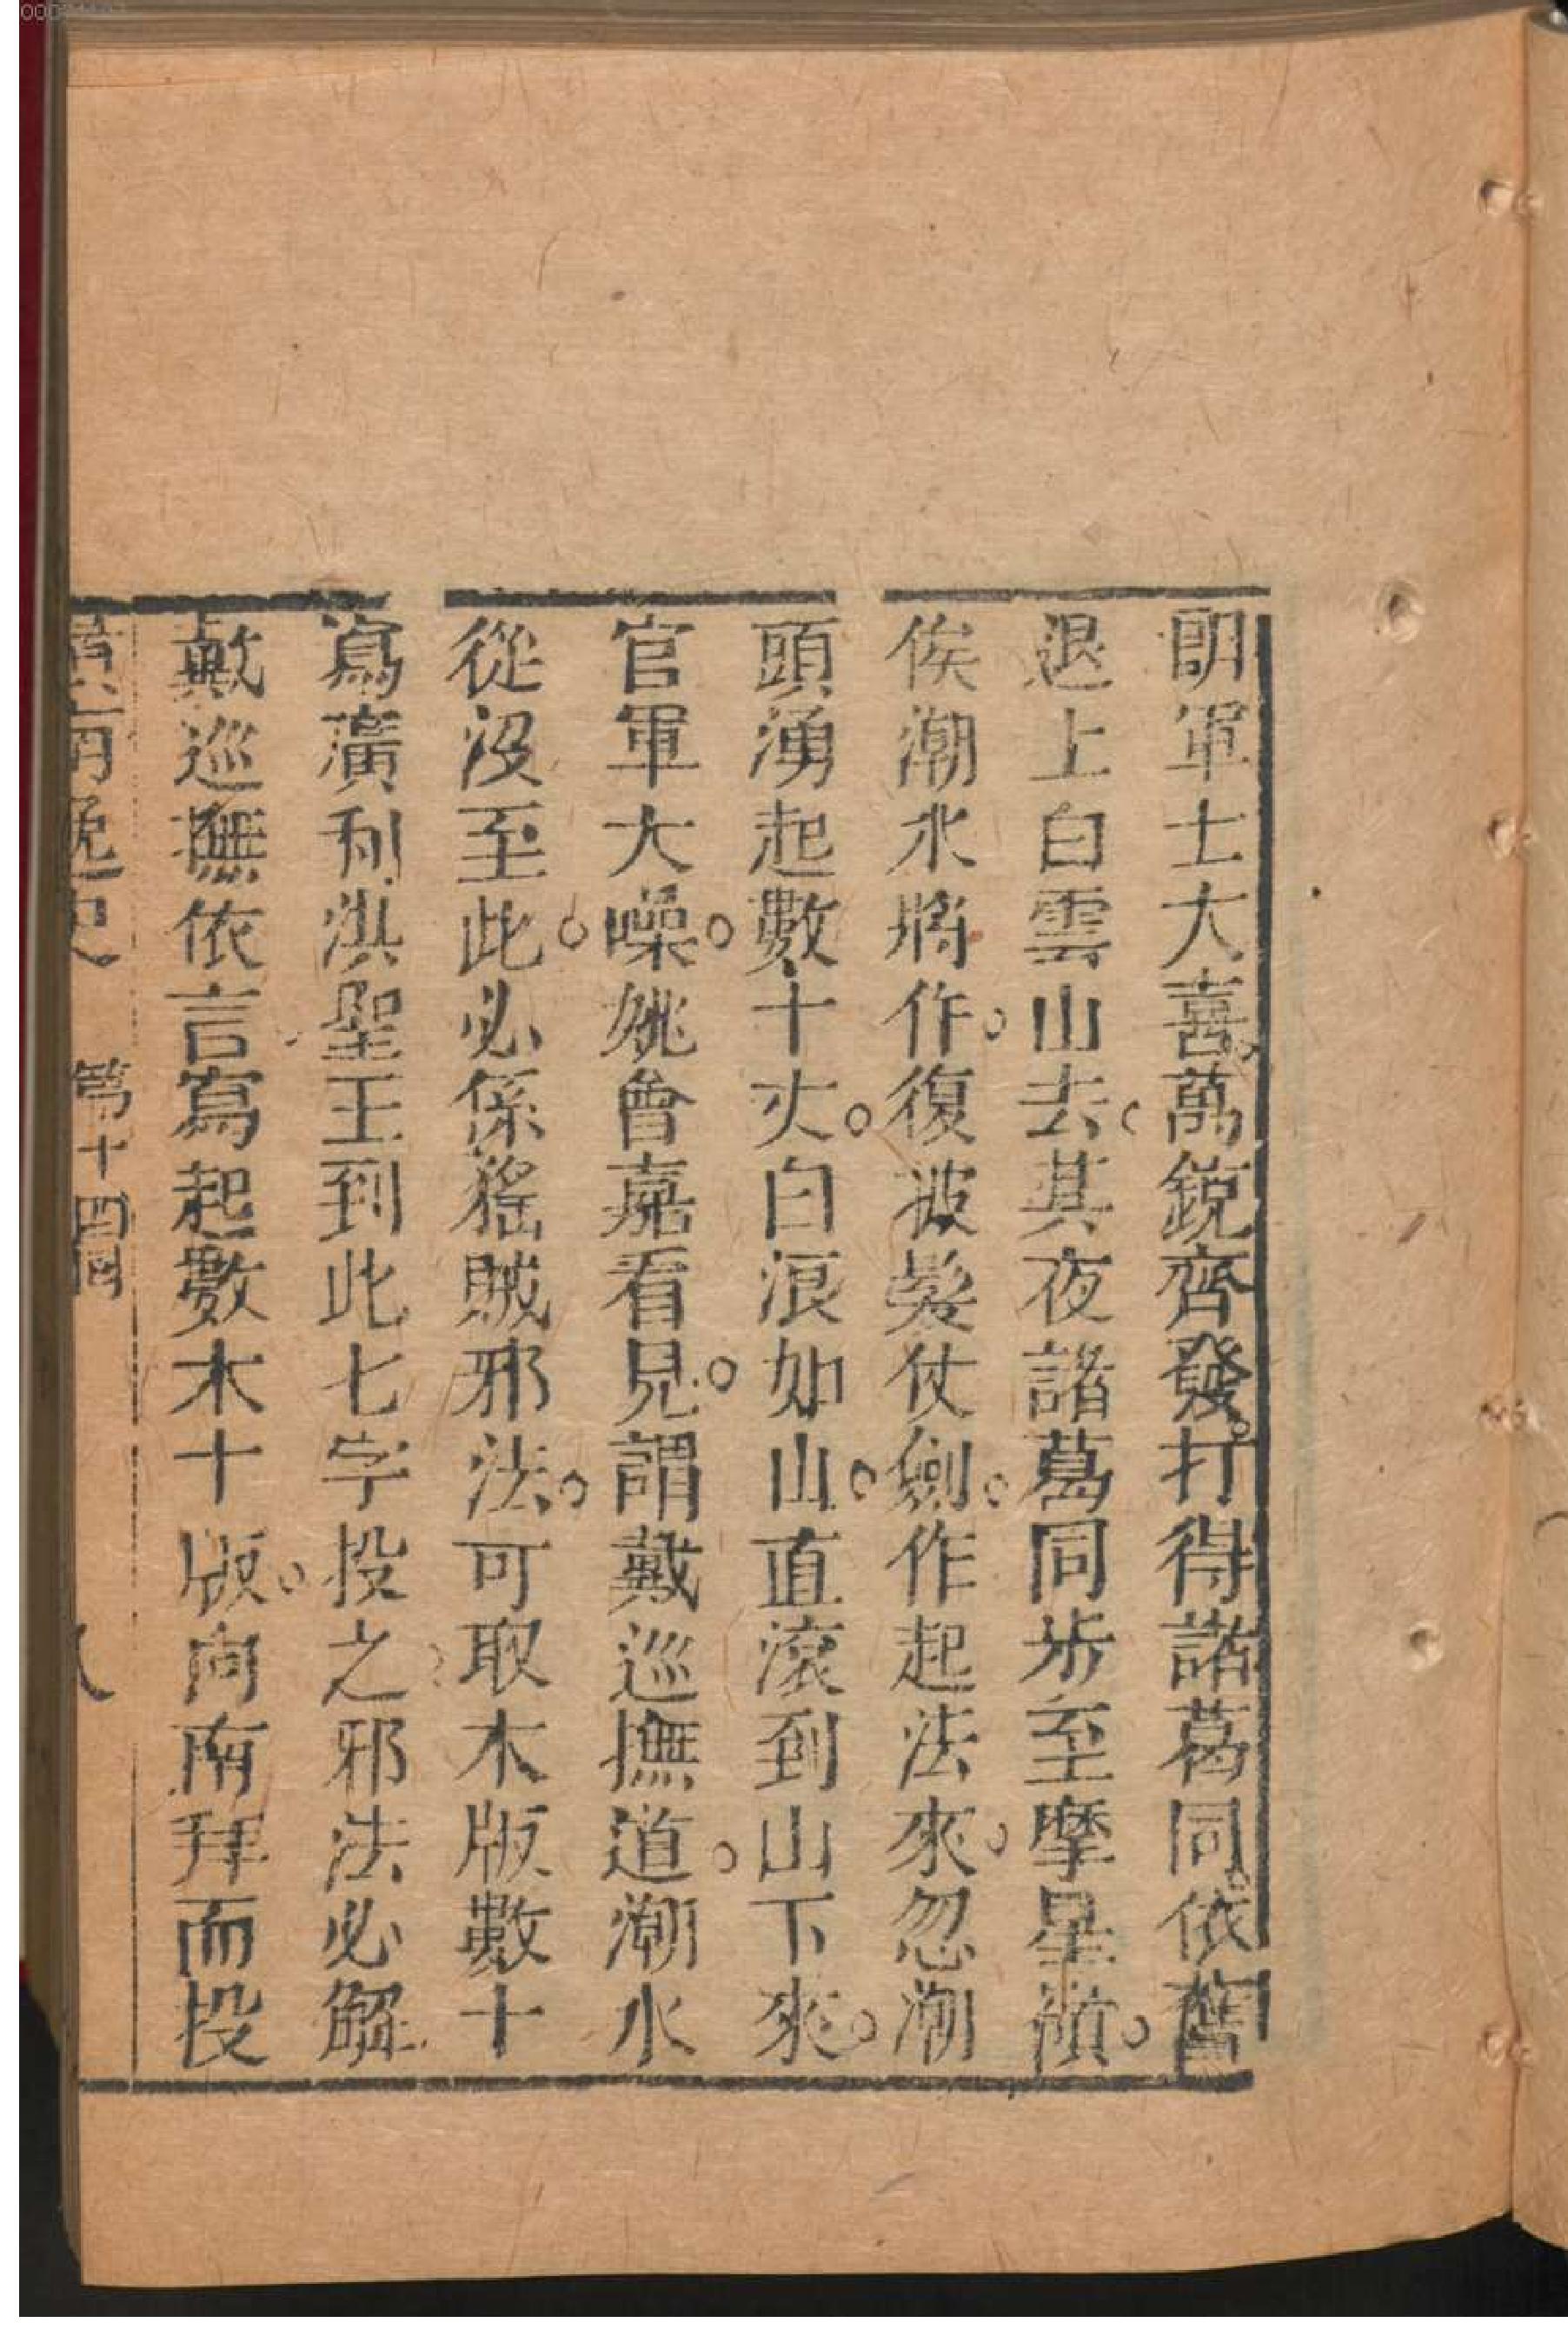 明軍士大喜萬銃齊發。打得諸葛同。依舊
退上白雲山去。其夜諸葛同步至摩星嶺。
俟潮水將作。復披髮仗劍。作起法來。忽潮
頭湧起數十丈。白浪如山。直滾到山下來。
官軍大噪。姚曾嘉看見。謂戴巡撫道。潮水
從没至此。必係猺賊邪法。可取木版數十
寫廣利洪聖王到此七字投之。邪法必解
戴巡撫依言寫起數木十版。向南拜而投
嶺南逸史 第十四囘 八